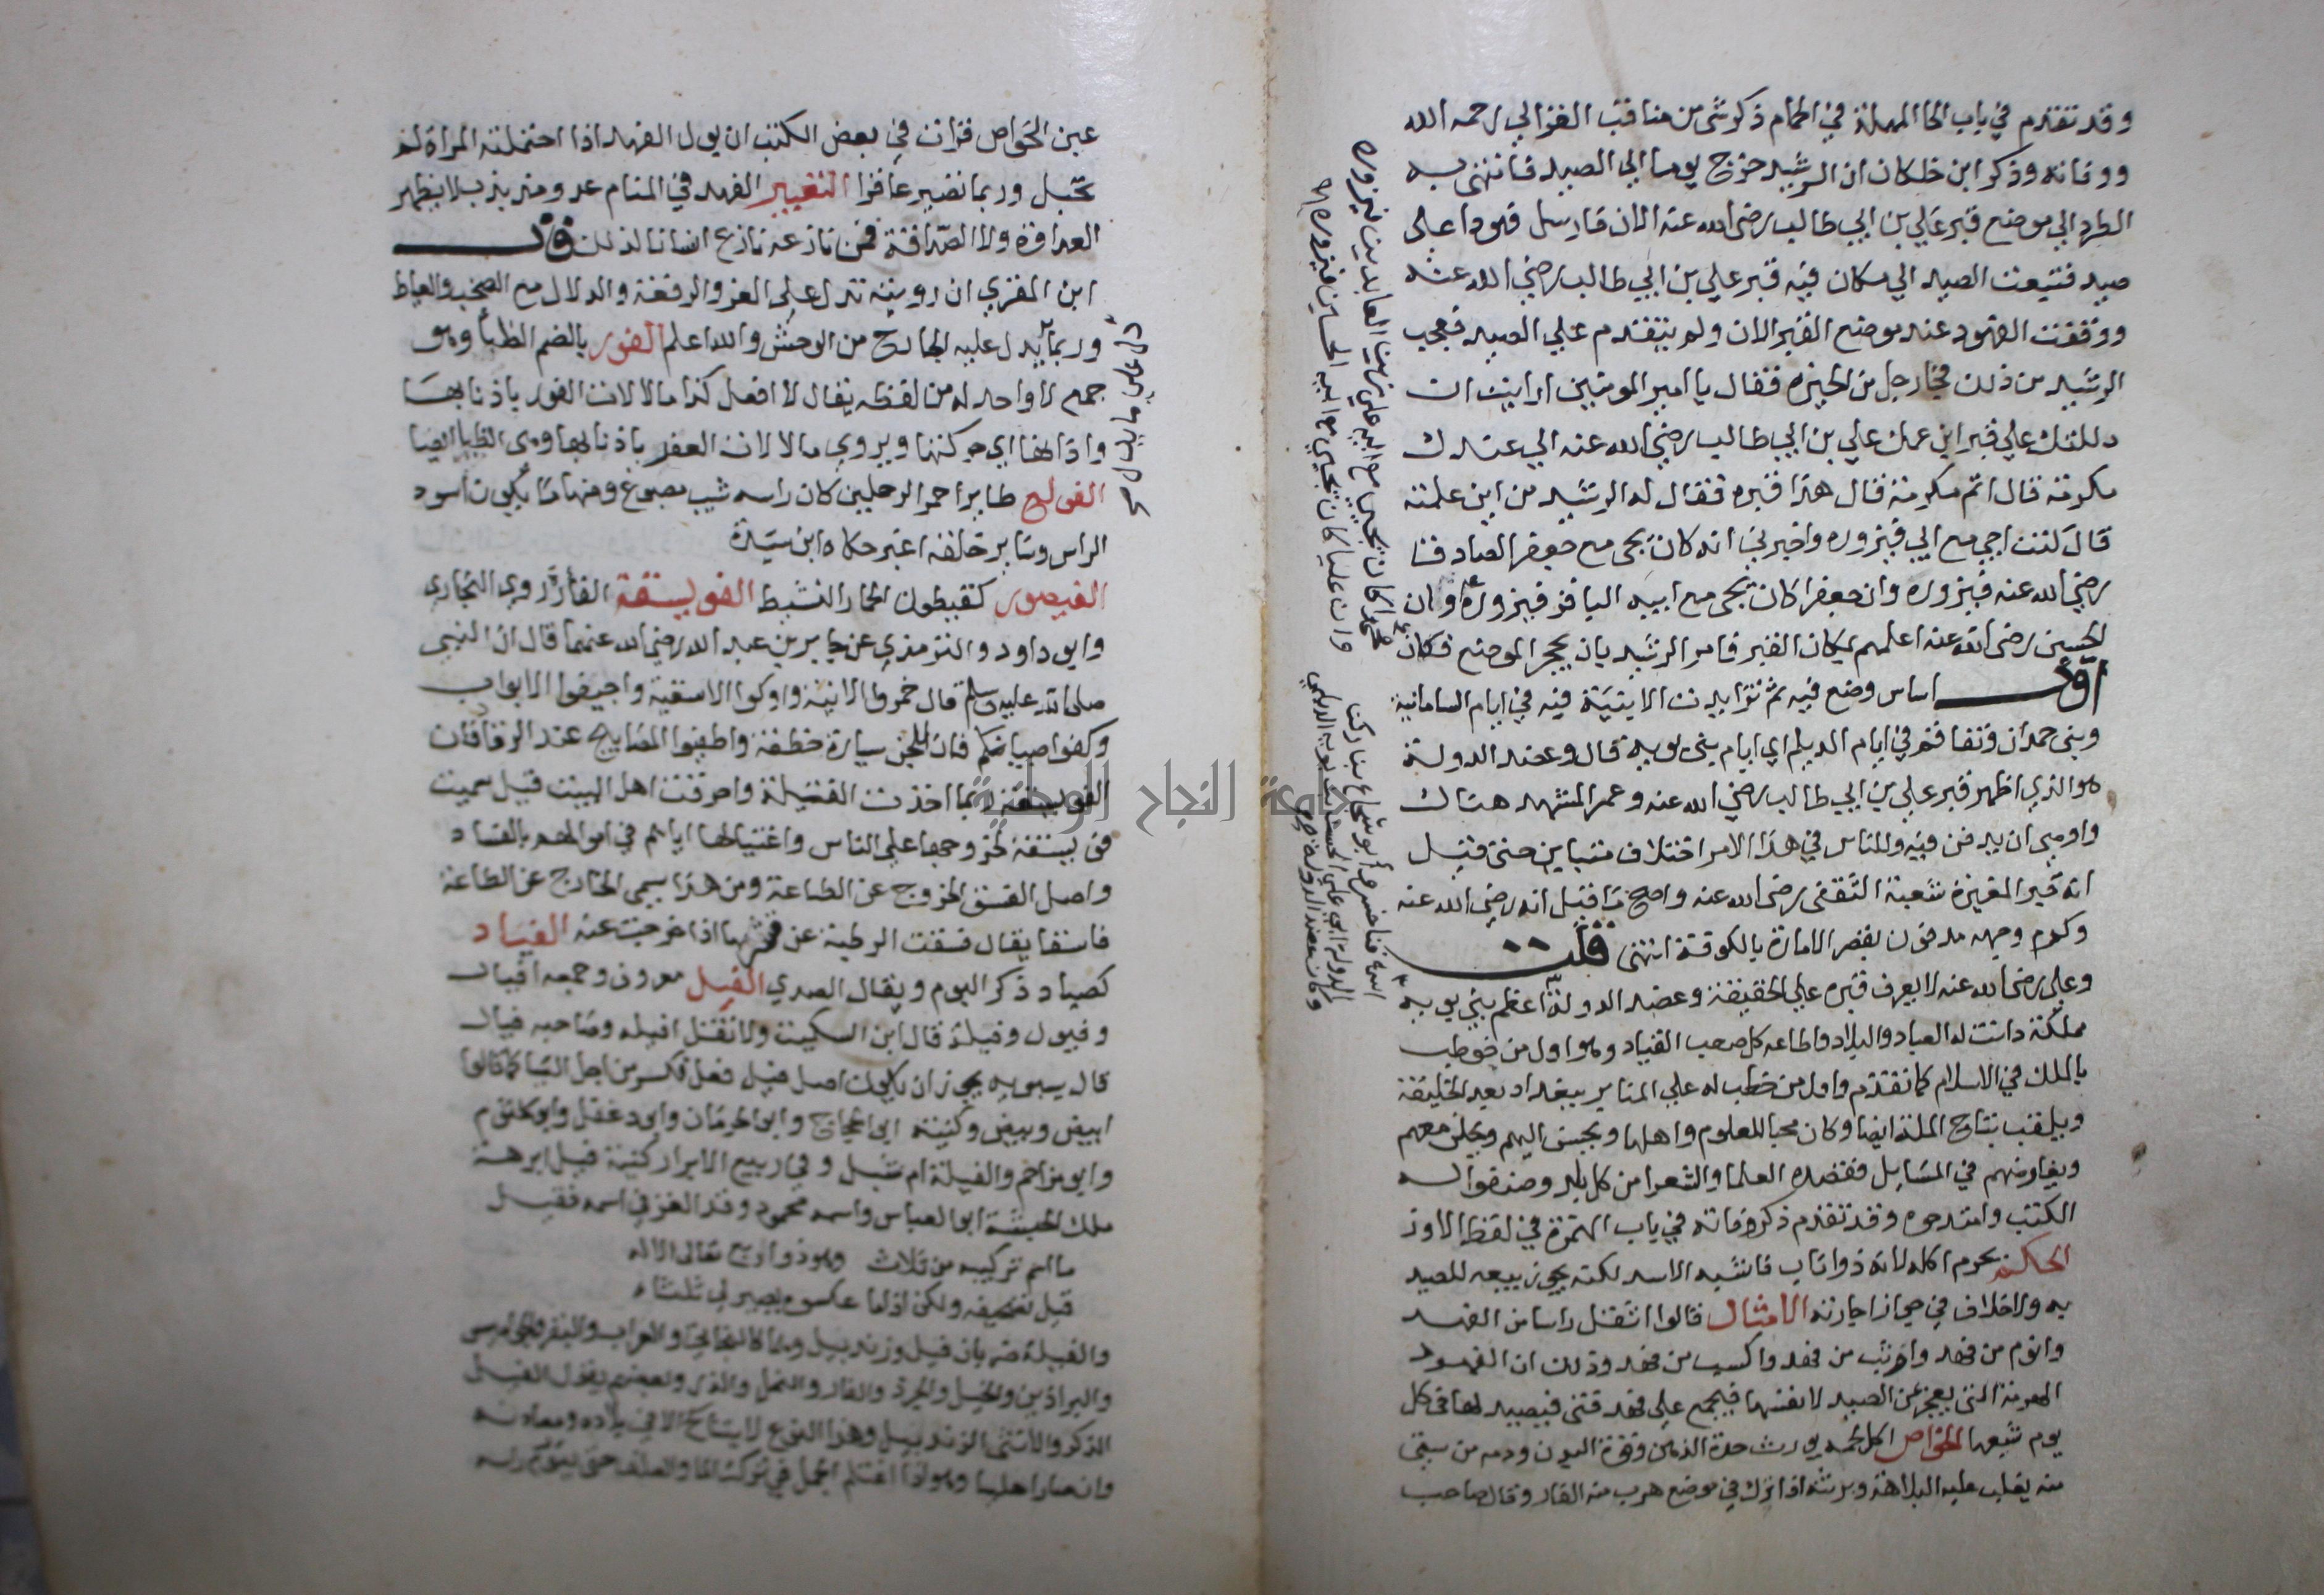 وقد تقدم في باب الحا المهملة في الحمام ذكر شي من مناقب الغزالي رحمه الله
ووفاته وذكر ابن خلكان ان الرشيد خرج يوما الي الصيد فانتهى به
الطرد الي موضع قبر علي بن ابي طالب رضي الله عنه الان فارسل فهودا على
صيد فتبعت الصيد الي مكان فيه قبر علي بن ابي طالب رضي الله عنه
ووقفت الفهود عند موضع القبر الان ولم يتقدم علي الصيد فعجب
الرشيد من ذلك فجا رجل من الحيزه فقال يا امير المومنين ارايت ان
دللتك علي قبر ابن عمك علي بن ابي طالب رضي الله عنه الي عندك
مكرمة قال اتم مكرمة قال هذا قبره فقال له الرشيد من اين علمته
قال كنت اجي مع ابي فيزوره واخبرني انه كان يجى مع جعفر الصادق
رضي الله عنه فيزوره وان جعفرا كان يجى مع ابيه الباقر فيزوره وان
محمدا كان يجيي مع ابيه علي زين العابدين فيزوره
وان عليا كان يجيي مع ابيه الحسين فيزوره
الحسين رضي الله عنه اعلمهم بمكان القبر فامر الرشيد بان يحجر الموضع فكان
اول اساس وضع فيه ثم تزايدت الابنية فيه في ايام السامانية
وبني حمدان وتفاقم في ايام الديلم اي ايام بني بويه قال وعضد الدولة
هو الذي اظهر قبر علي بن ابي طالب رضي الله عنه وعمر المشهد هناك
واوصى ان يدفن فيه وللناس في هذا الامر اختلاف متباين حتى قيل
انه قبر المغيرة شعبة الثقفى رضي الله عنه واصح ما قيل انه رضي الله عنه
وكرم وجهه مدفون بقصر الامارة بالكوفة انتهى قلت
وعلي رضي الله عنه لا يعرف قبره علي الحقيقة وعضد الدولة اعظم بني بويه
اسمه فناخسرو أبو شجاع بن ركن
الدولة ابي علي الحسن بن بويه الديلمي
مملكة دانت له العباد والبلاد واطاعه كل صعب القياد وهو اول من خوطب
بالملك في الاسلام كما تقدم واول من خطب له علي المنابر ببغداد بعد الخليفة
ويلقب بتاج الملة ايضا وكان محبا للعلوم واهلها ويحسن اليهم ويجلس معهم
ويفاوضهم في المسايل فقصده العلما والشعرا من كل بلد وصنفوا له
الكتب وامتدحوه وقد تقدم ذكر وفاته في باب الهمزة في لفظ الاوز
الحكم يحرم اكله لانه ذو اناب فاشبه الاسد لكنه يجوز بيعه للصيد
به ولا خلاف في جواز اجارته الامثال قالوا اثقل راسا من الفهد
وانوم من فهد واوثب من فهد واكسب من فهد وذلك ان الفهود
الهرمة التي يعجز عن الصيد لانفسها فيجمع علي فهد فتى فيصيد لها في كل
يوم شبعها الخواص اكل لحمه يورث حدة الذهن وقوة البدن ودمه من سقى
منه يغلب عليه البلاهة وبرثنه اذا ترك في موضع هرب منه الفار وقال صاحب
عين الخواص قرات في بعض الكتب ان بول الفهد اذا احتملته المراة لم
تحبل وربما تصير عاقرا التعبير الفهد في المنام عدو متذبذب لا يظهر
العداوة ولا الصداقة فمن نازعه نازع انسانا لذلك وقال
ابن المقري ان رويته تدل علي العز والرفعة والدلال مع الصخب والعياط
وربما يدل عليه الجارح من الوحش والله اعلم الفور بالضم الظبا وهو
دل على ما يدل
جمع لا واحد له من لفظه يقال لا افعل كذا ما لالات الفور باذنابها
واذالها اي حركتها ويروي ما لالات العفر باذنابها وهي الظبا ايضا
الفولع طاير احمر الرجلين كان راسه شيب مصبوغ ومنها ما يكون اسود
الراس وساير خلفه اغبر حكاه ابن سيدة
الفيصور كقيطون الحمار النشيط الفويسقة الفأرة روي البخاري
وابو داود والترمذي عن جابر بن عبد الله رضي الله عنهما قال ان النبي
صلى الله عليه وسلم قال خمروا الانية واوكوا الاسقية واجيفوا الابواب
وكفوا صبيانكم فان للجن سيارة خطفة واطفيوا المصابيح عند الرقاد فان
الفويسقة ربما اخذت الفتيلة واحرقت اهل البيت قيل سميت
فويسقة لخروجها على الناس واغتيالها اياهم في اموالهم بالفساد
واصل الفسق الخروج عن الطاعة ومن هذا سمي الخارج عن الطاعة
فاسقا يقال فسقت الرطبة عن قشرها اذا خرجت عنه الفياد
كصياد ذكر البوم ويقال الصدي الفيل معروف وجمعه افيال
وفيول وفيلة قال ابن السكيت ولا تقل افيلة وصاحبه فيال
قال سيبويه يجوز ان يكون اصل فيل فعل فكسر من اجل اليا كما قالوا
ابيض وبيض وكنيته ابو الحجاج وابو الحرمان وابو دغفل وابو كلثوم
وابو مزاحم والفيلة ام شبل وفي ربيع الابرار كنية فيل ابرهة
ملك الحبشة ابو العباس واسمه محمود وقد الغز في اسمه فقيل
ما اسم تركيبه من ثلاث وهو ذو اربع تعالى الاله
قيل تصحيفه ولكن اذا ما عكسوه يصير لي ثلثاه
والفيلة ضربان فيل وزندبيل وهما كالبخاتي والعراب والبقر والجواميس
والبراذين والخيل والجرذ والفار والنمل والذر وبعضهم يقول الفيل
الذكر والانثى الزندبيل وهذا النوع لا يتناكح الا في بلاده ومعادنه
وان صار اهليا وهو اذا اغتلم اشبه الجمل في ترك الما والعلف حتى يتورم راسه
جامعة النجاح الوطنية